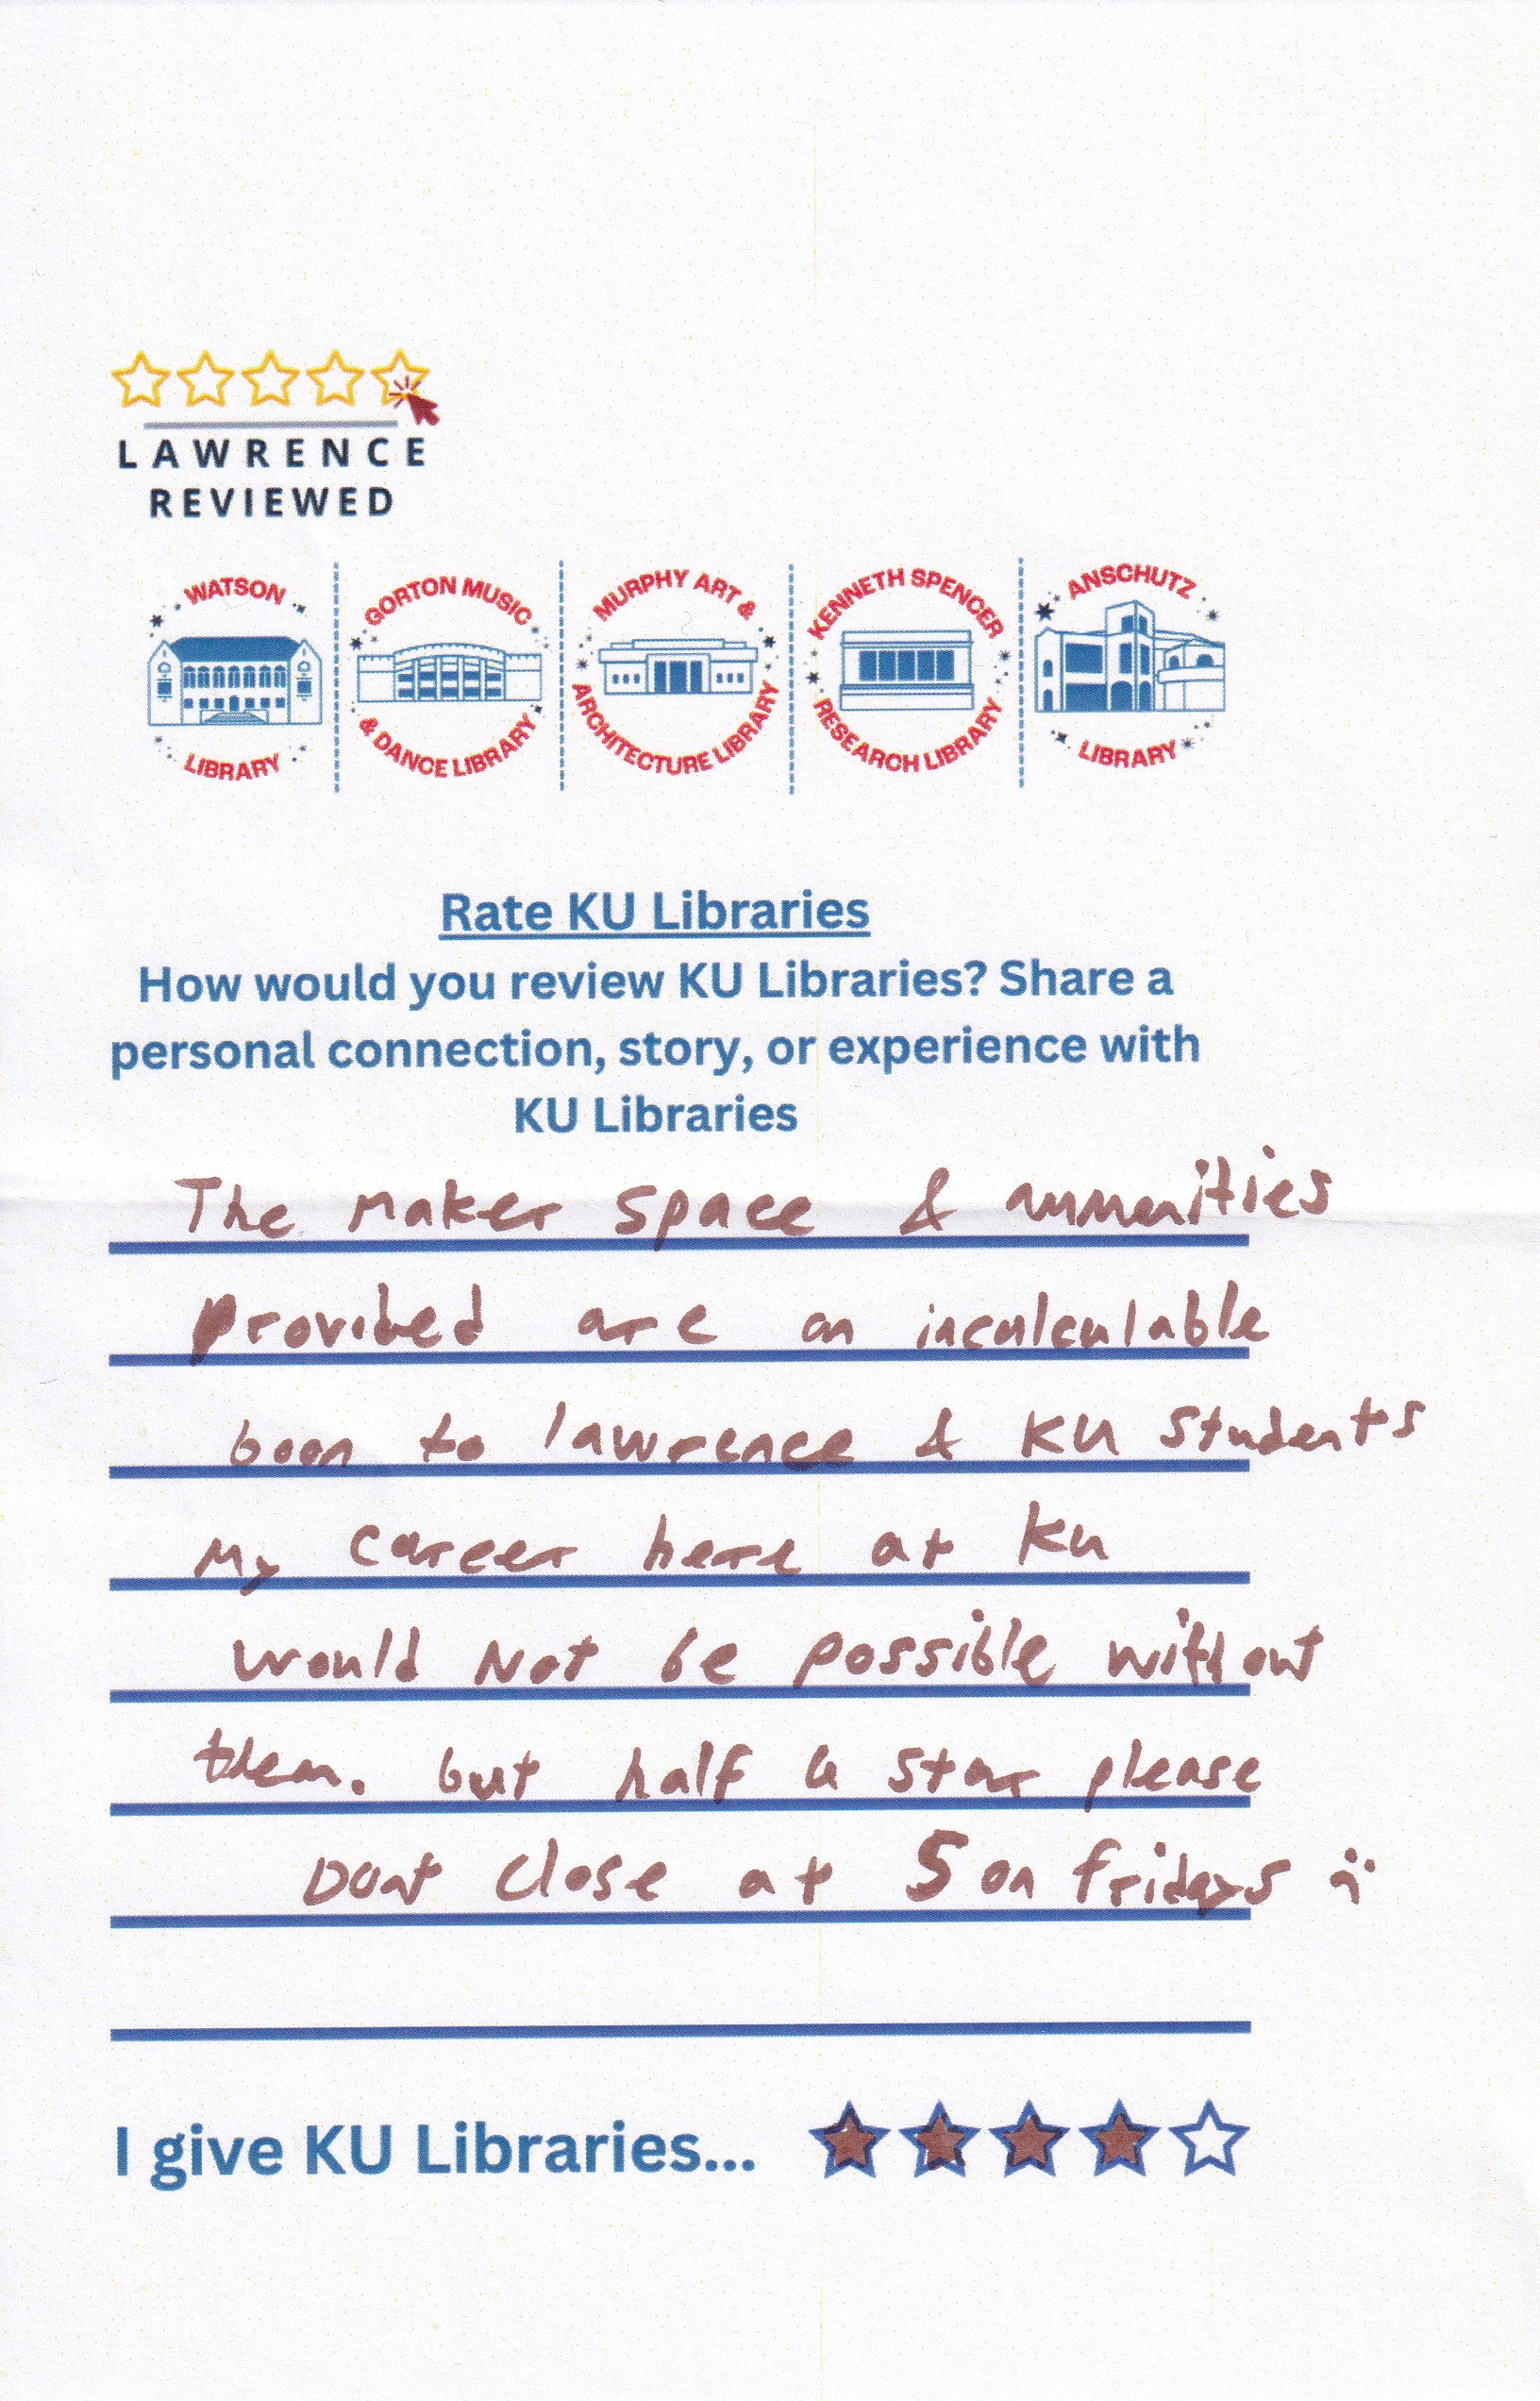 LAWRENCE
REVIEWED
WATSON
LIBRARY
GORTON MUSIC
& DANCE LIBRARY
MURPHY ART &
ARCHITECTURE LIBRARY
KENNETH SPENCER
RESEARCH LIBRARY
ANSCHUTZ
LIBRARY
Rate KU Libraries
How would you review KU Libraries? Share a
personal connection, story, or experience with
KU Libraries
The Maker space & ammenities
provided are an incalculable
boon to lawrence & KU students
My career here at KU
would Not be possible without
them. but half a star please
Dont close at 5 on fridays :(
I give KU Libraries...